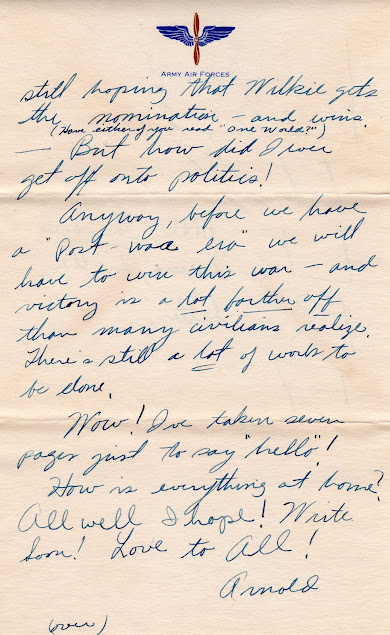 ARMY AIR FORCES
still hoping that Wilkie gets
the nomination – and wins.
(Have either of you read "One World?")
— But how did I ever
get off onto politics!
Anyway, before we have
a "Post-war era" we will
have to win this war – and
victory is a lot farther off
than many civilians realize.
There's still a lot of work to
be done.
Wow! I've taken seven
pages just to say "hello"!
How is everything at home?
All well I hope! Write
Soon! Love to All!
Arnold
(over)